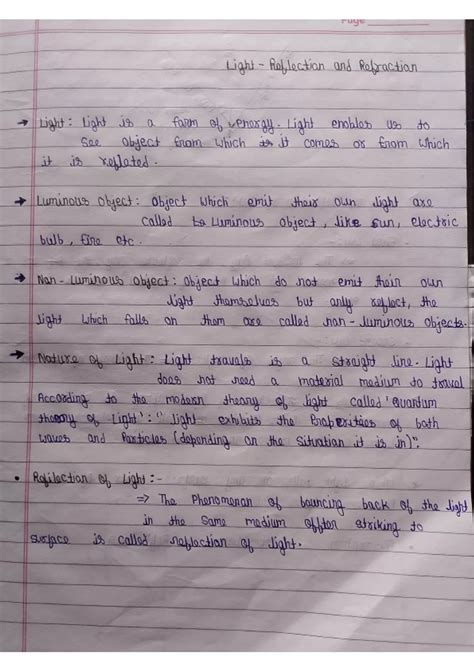 Page
Light - Reflection and Refraction
→ Light : Light is a form of energy. Light enables us to
see object from which it comes or from which
it is reflated.
→ Luminous Object : Object which emit their own light are
called Luminous object, like sun, electric
bulb, fire etc.
→ Non-Luminous object : Object which do not emit their own
light themselves but only reflect, the
light which falls on them are called non-luminous objects.
→ Nature of Light : Light travels is a straight line. Light
does not need a material medium to travel
According to the modern theory of light called 'Quantum
theory of Light' : "light exhibits the Properities of both
waves and Particles (depending on the situation it is in)".
• Refilection of Light :-
⇒ The Phenomenan of bouncing back of the light
in the same medium striking to
surface is called reflection of light.